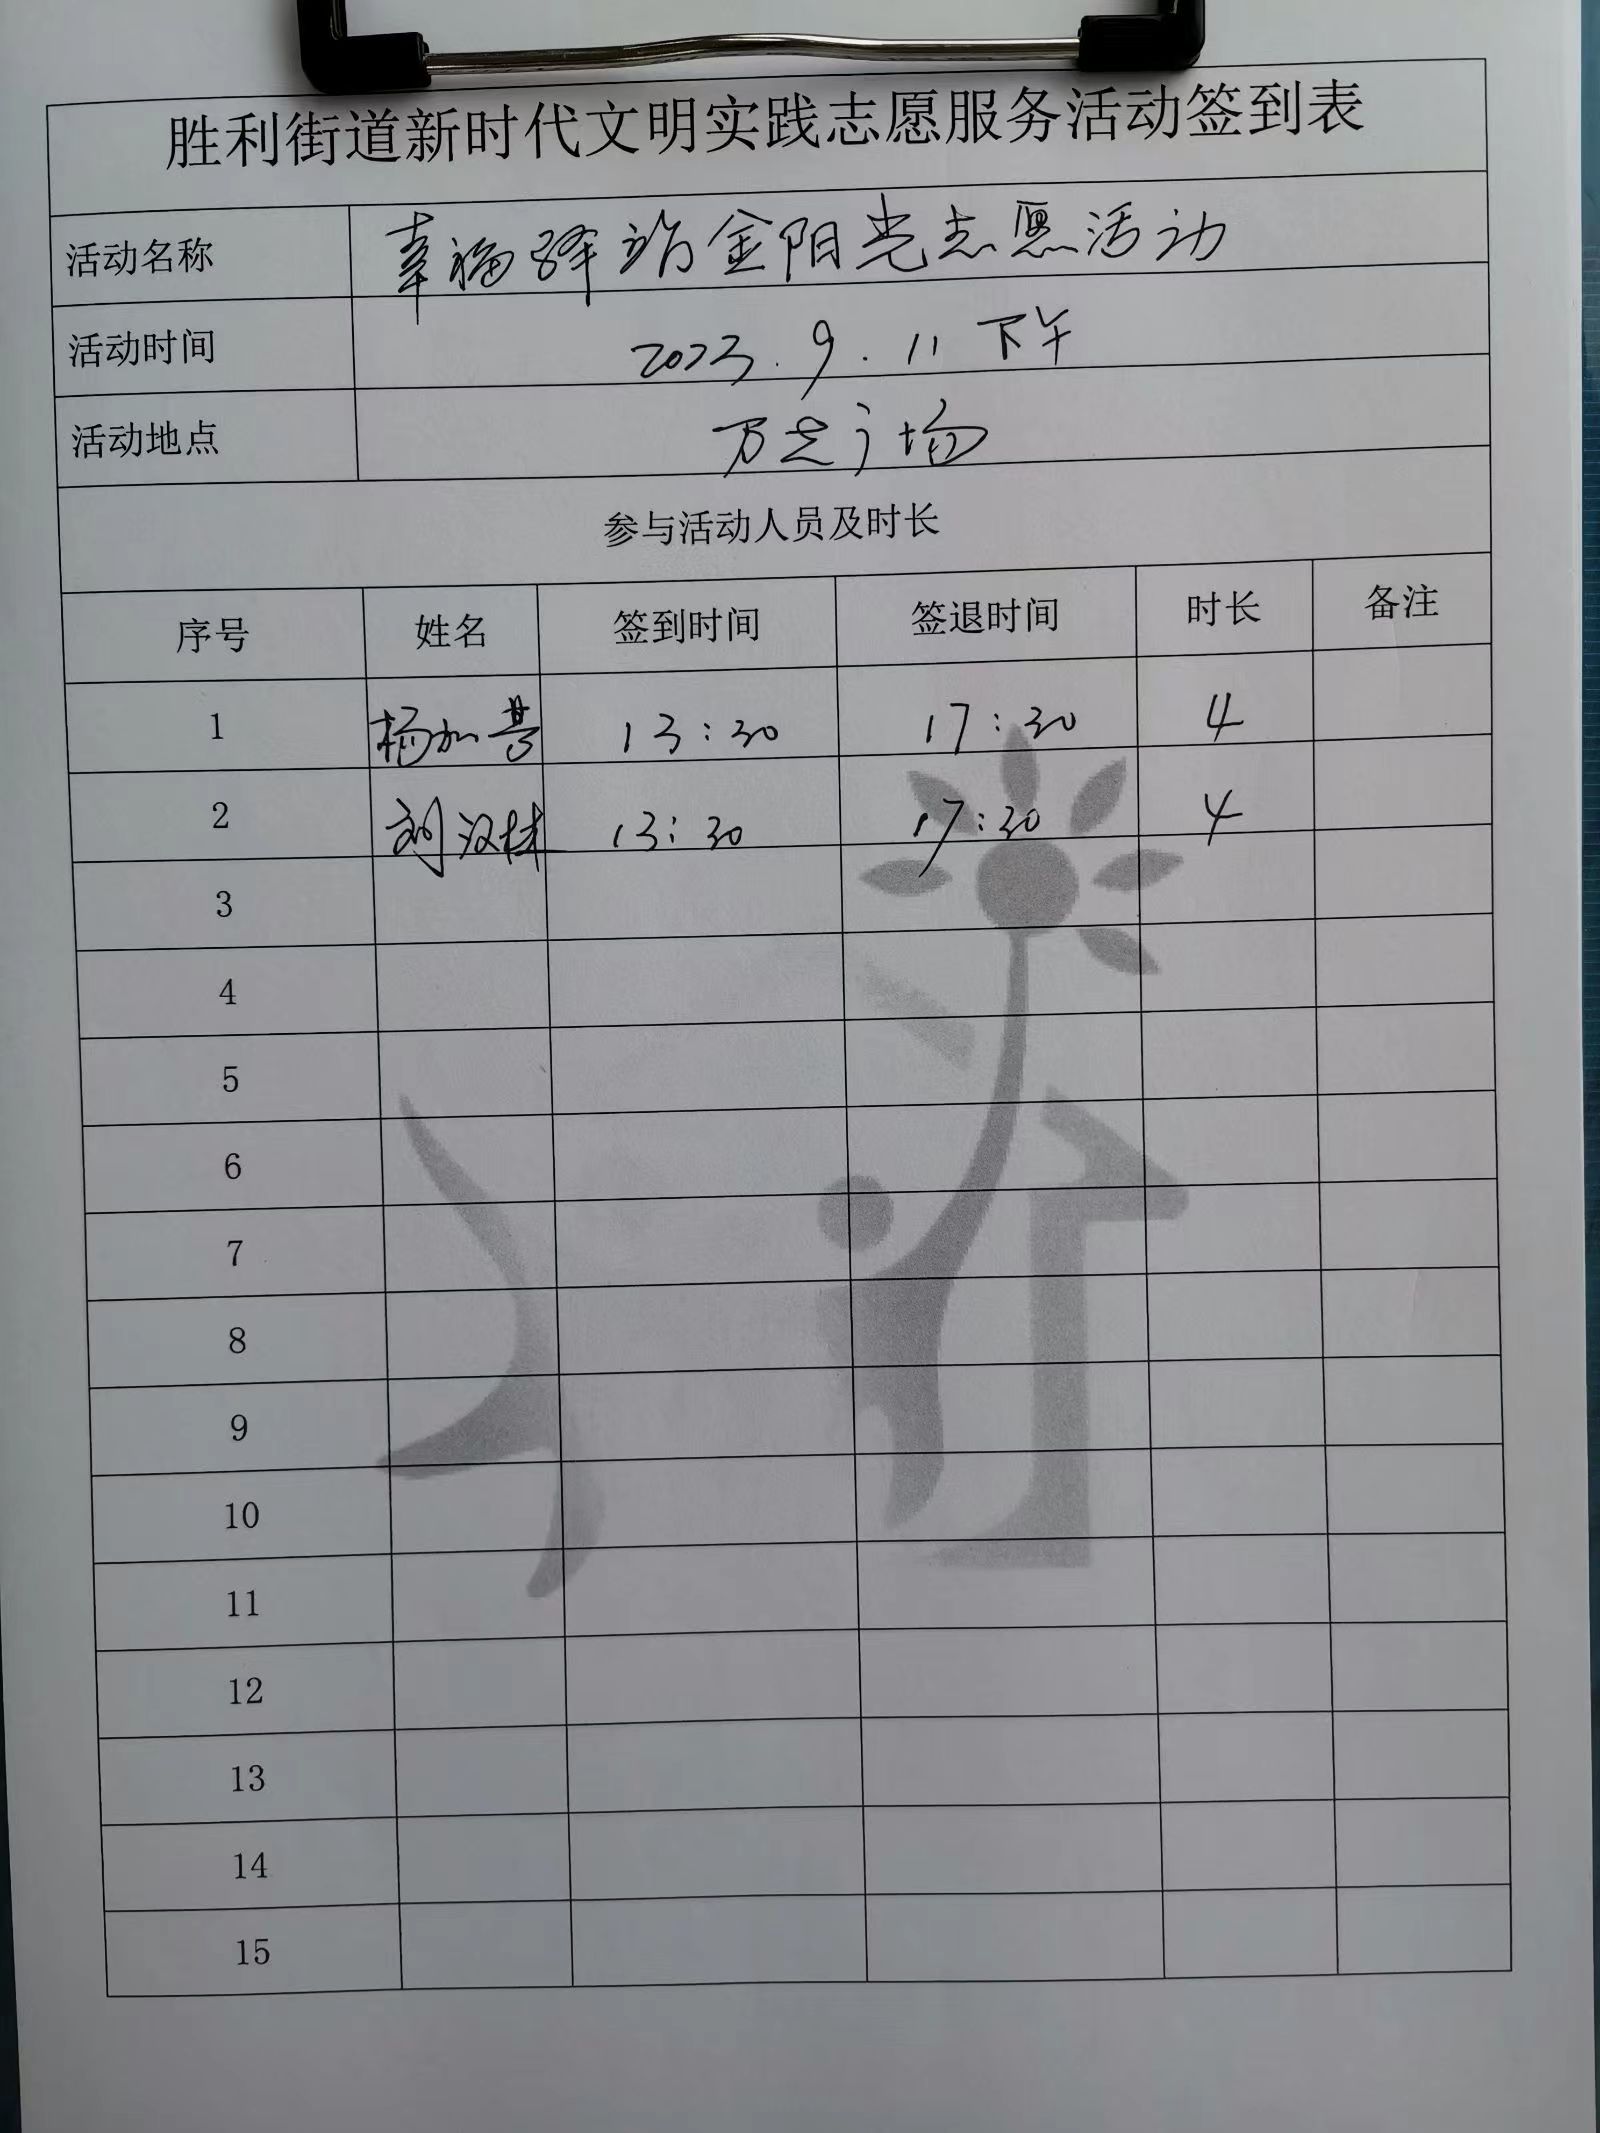 胜利街道新时代文明实践志愿服务活动签到表
活动名称 幸福驿站金阳光志愿活动
活动时间 2023.9.11 下午
活动地点 万达广场
参与活动人员及时长
序号 姓名 签到时间 签退时间 时长 备注
1 杨加 13:30 17:30 4
2 刘汉林 13:30 17:30 4
3
4
5
6
7
8
9
10
11
12
13
14
15